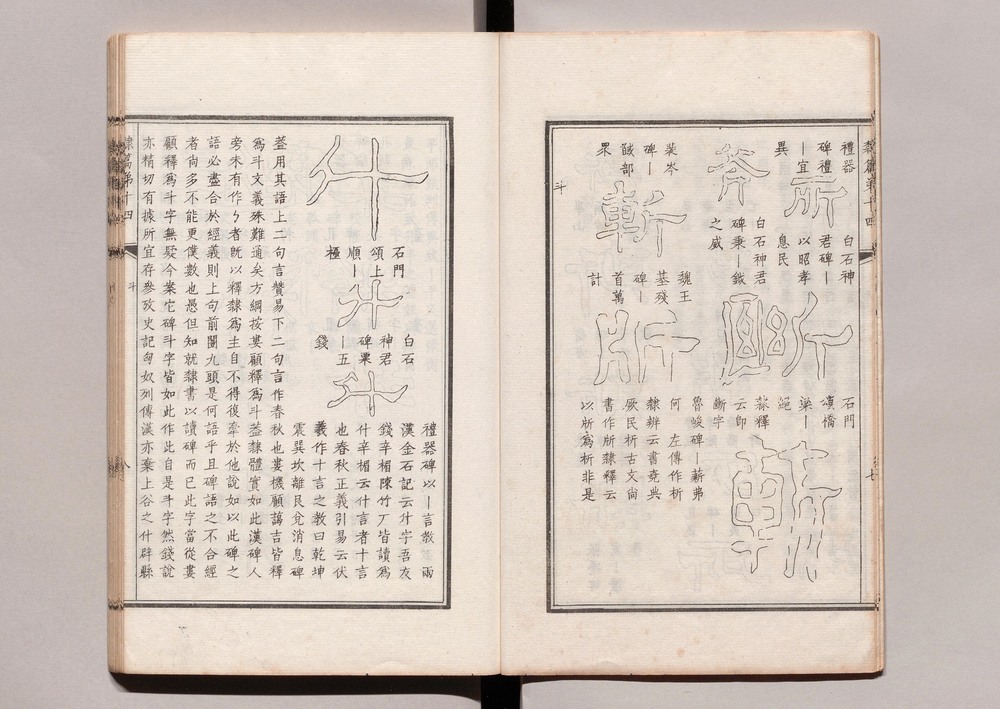 禮器
碑禮
｜宜
異
所
白石神
君碑｜
以昭孝
息民
所
石門
頌橋
梁｜
絕
斧
白石神君
碑秉｜鉞
之威
斷
隸釋
云卽
斷字
裴岑
碑｜
馘部
眾
斬
魏王
墓殘
碑｜
首萬
計
魯峻碑｜薪弗
何　左傳作析
隸辨云書堯典
厥民析古文尙
書作斨隸釋云
以斨爲析非是
斗
石門
頌上
順｜
極
白石
神君
碑粟
｜五
錢
禮器碑以｜言敎兩
漢金石記云廾字吾友
錢辛楣陳竹厂皆讀爲
什辛楣云什言者十言
也春秋正義引易云伏
羲作十言之敎曰乾坤
震巽坎離艮兌消息碑
葢用其語上二句言贊易下二句言作春秋也婁機顧藹吉皆釋
爲斗文義殊難通矣方綱按婁顧釋爲斗葢隸體實如此漢碑人
旁未有作𠂊者旣以釋隸爲主自不得復牽於他說如以此碑之
語必盡合於經義則上句前闓九頭是何語乎且碑語之不合經
者尙多不能更僕數也愚但知就隸書以讀碑而已此字當從婁
顧釋爲斗字無疑今案它碑斗字皆如此作此自是斗字然錢說
亦精切有據所宜存參攷史記匈奴列傳漢亦棄上谷之什辟縣
隸篇第十四　斗　八